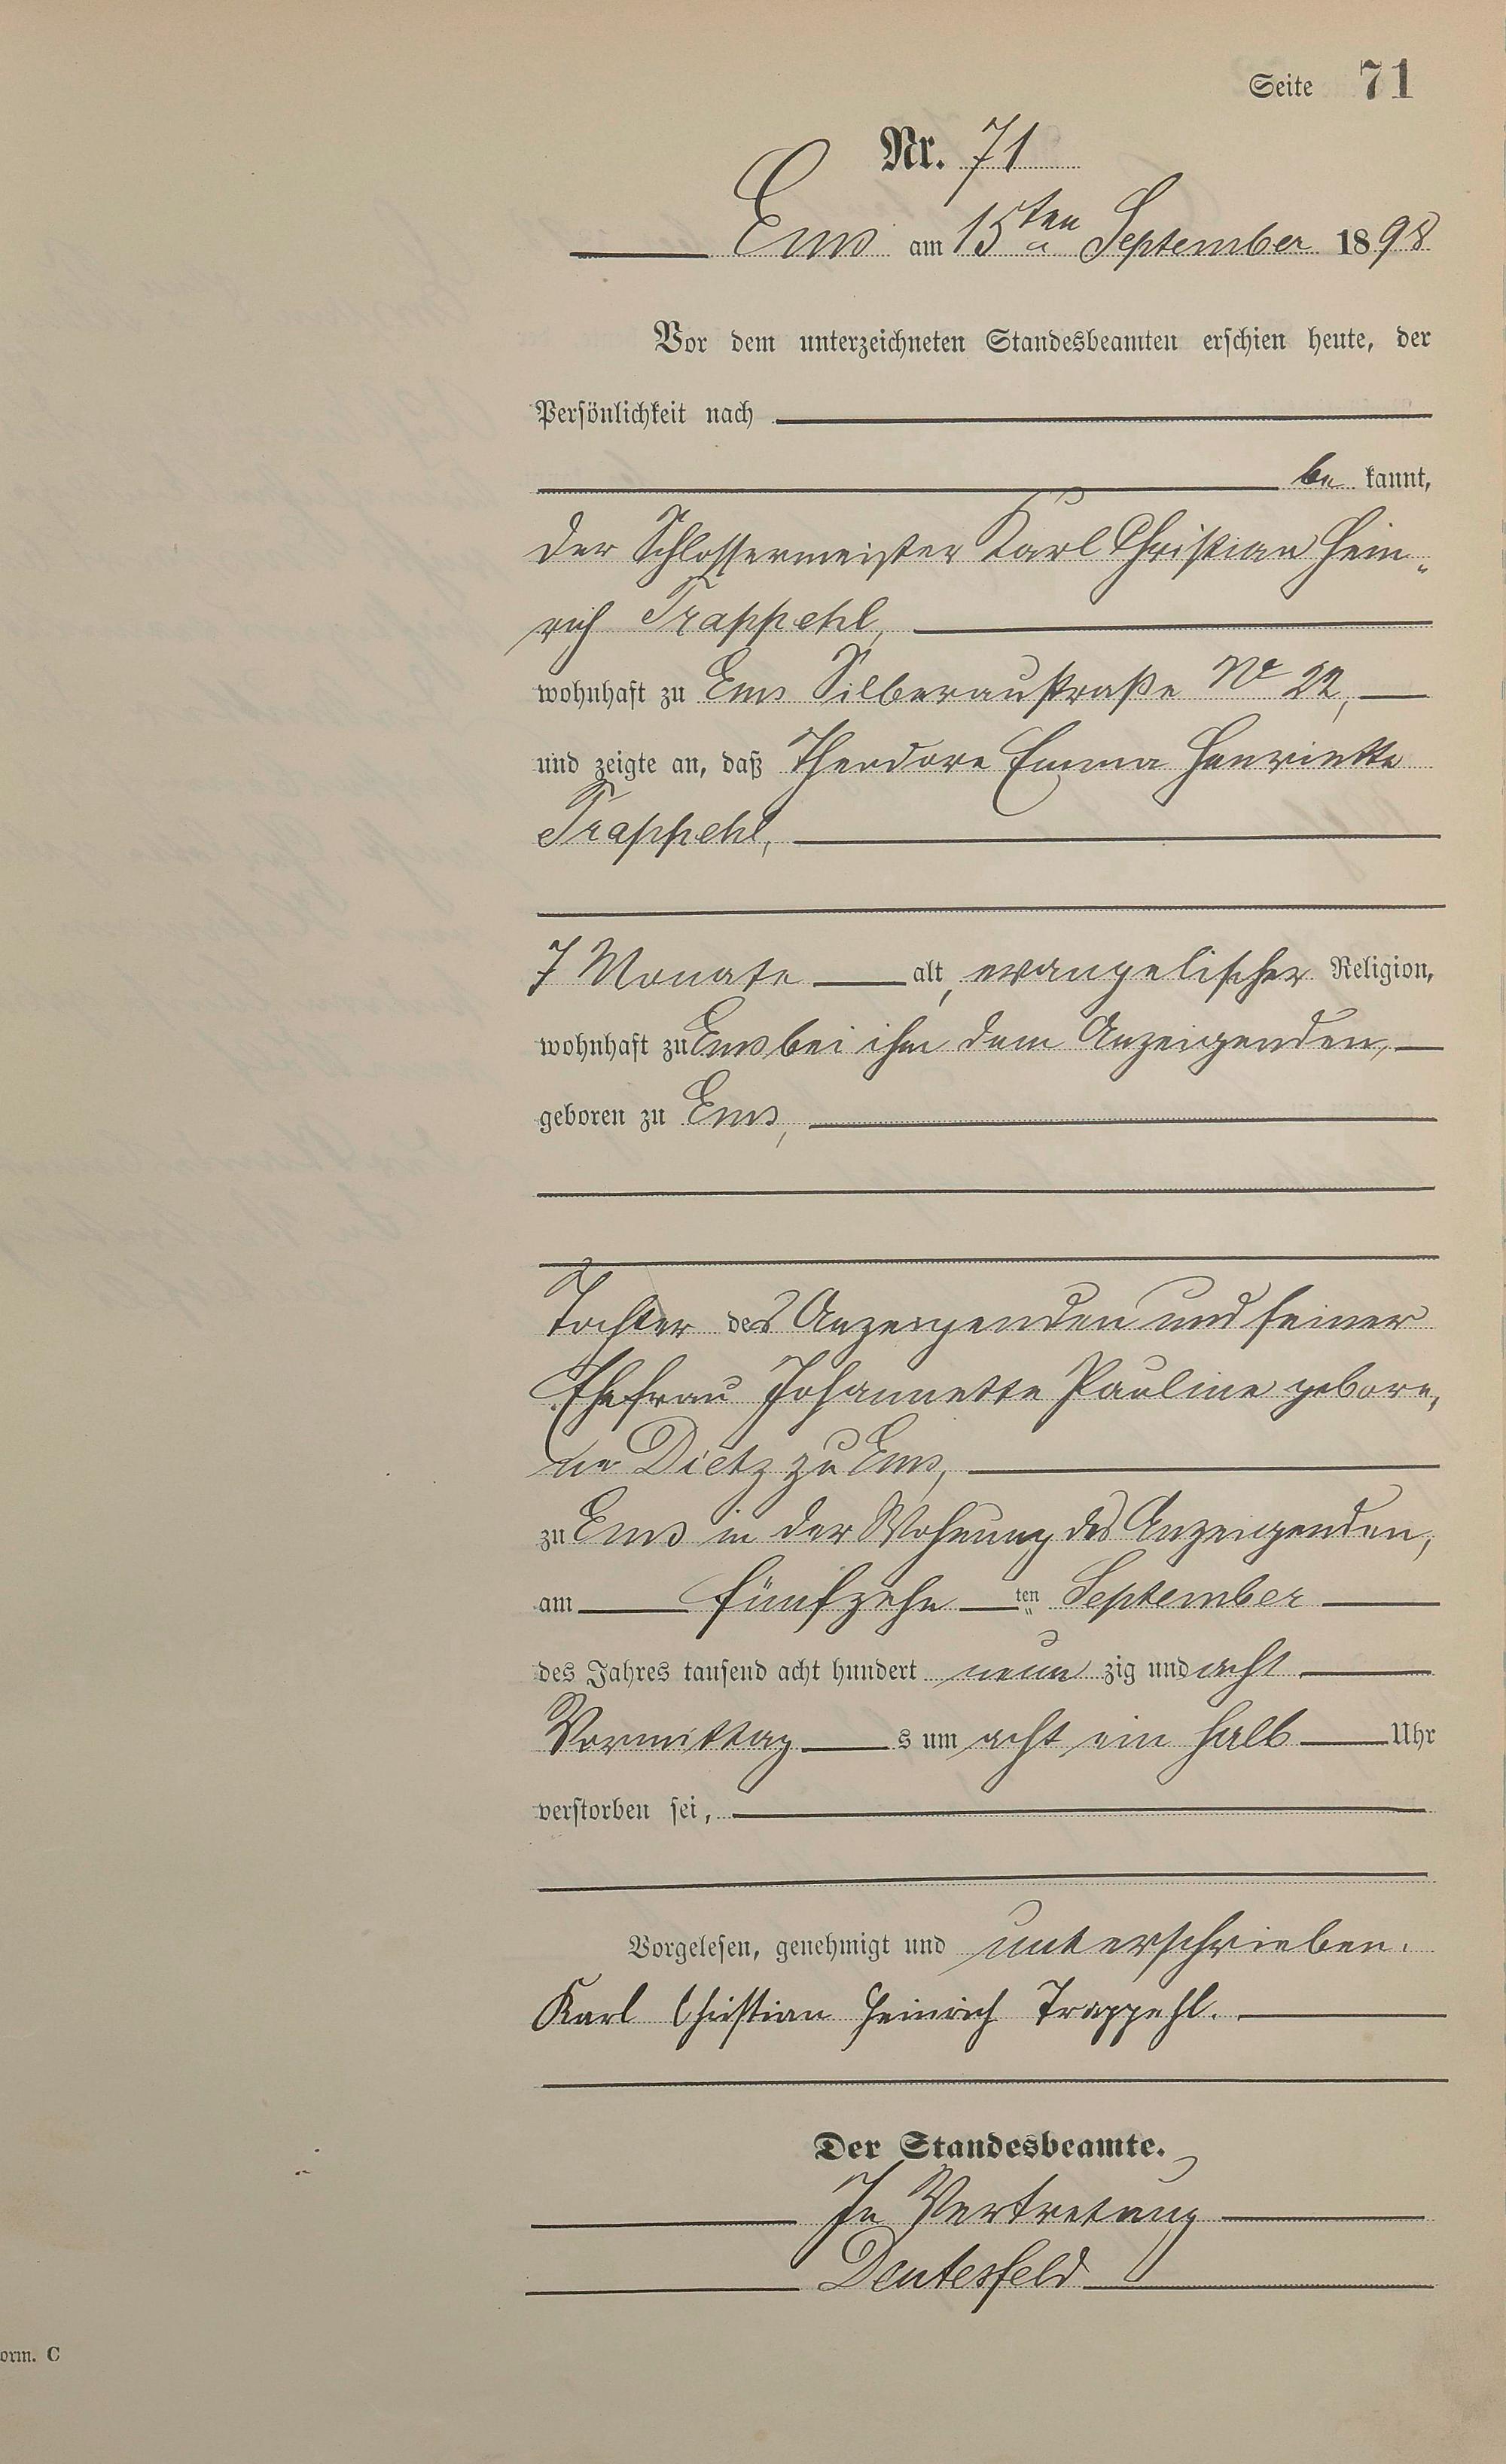 Seite 71
Nr. 71
Ems am 15ten September 1898
Vor dem unterzeichneten Standesbeamten erschien heute, der
Persönlichkeit nach
be kannt,
der Schlossermeister Karl Christian Hein„
rich Trappehl,
wohnhaft zu Ems Silberaustraße No 22,
und zeigte an, daß Theodore Emma Henriette
Trappehl,
7 Monate alt, evangelischer Religion,
wohnhaft zu Ems bei ihm dem Anzeigenden,
geboren zu Ems,
Tochter des Anzeigenden und seiner
Ehefrau Johannette Pauline gebore„
ne Dietz zu Ems,
zu Ems in der Wohnung des Anzeigenden,
am fünfzehn ten September
des Jahres tausend acht hundert neun zig und acht
Vormittag s um acht ein halb Uhr
verstorben sei,
Vorgelesen, genehmigt und unterschrieben.
Karl Christian Heinrich Trappehl.
Der Standesbeamte.
In Vertretung
Deutesfeld
orm. C